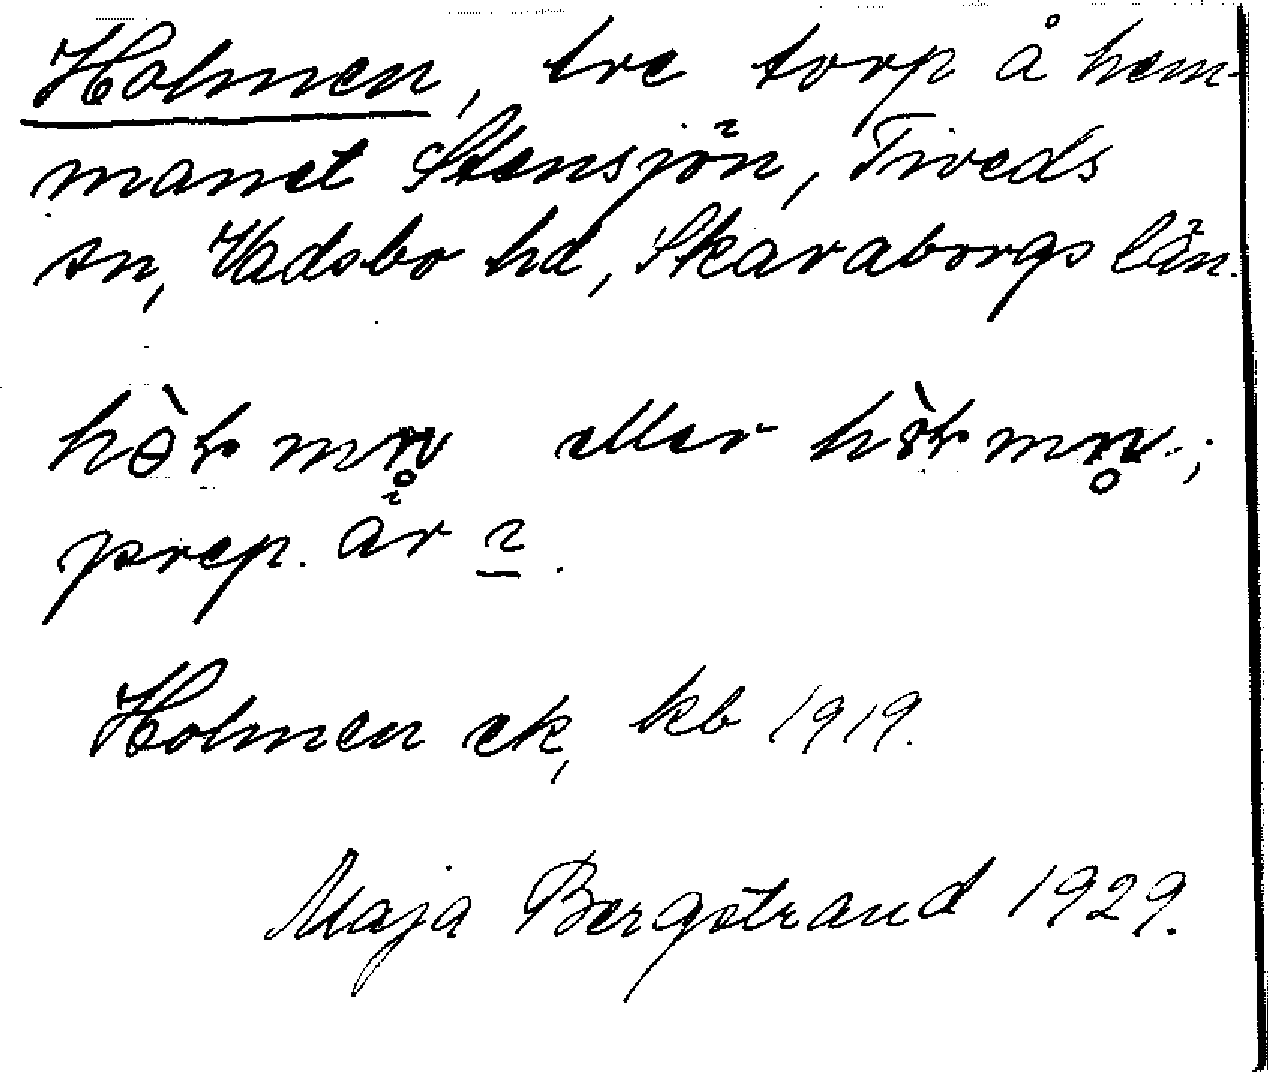 Holmen, tre torp å hem-
manet Stensjön, Tiveds
sn, Vadsbo hd, Skaraborgs län.
eller
prep. är
Holmen ek, kb 1919.
Maja Bergstrand 1929.